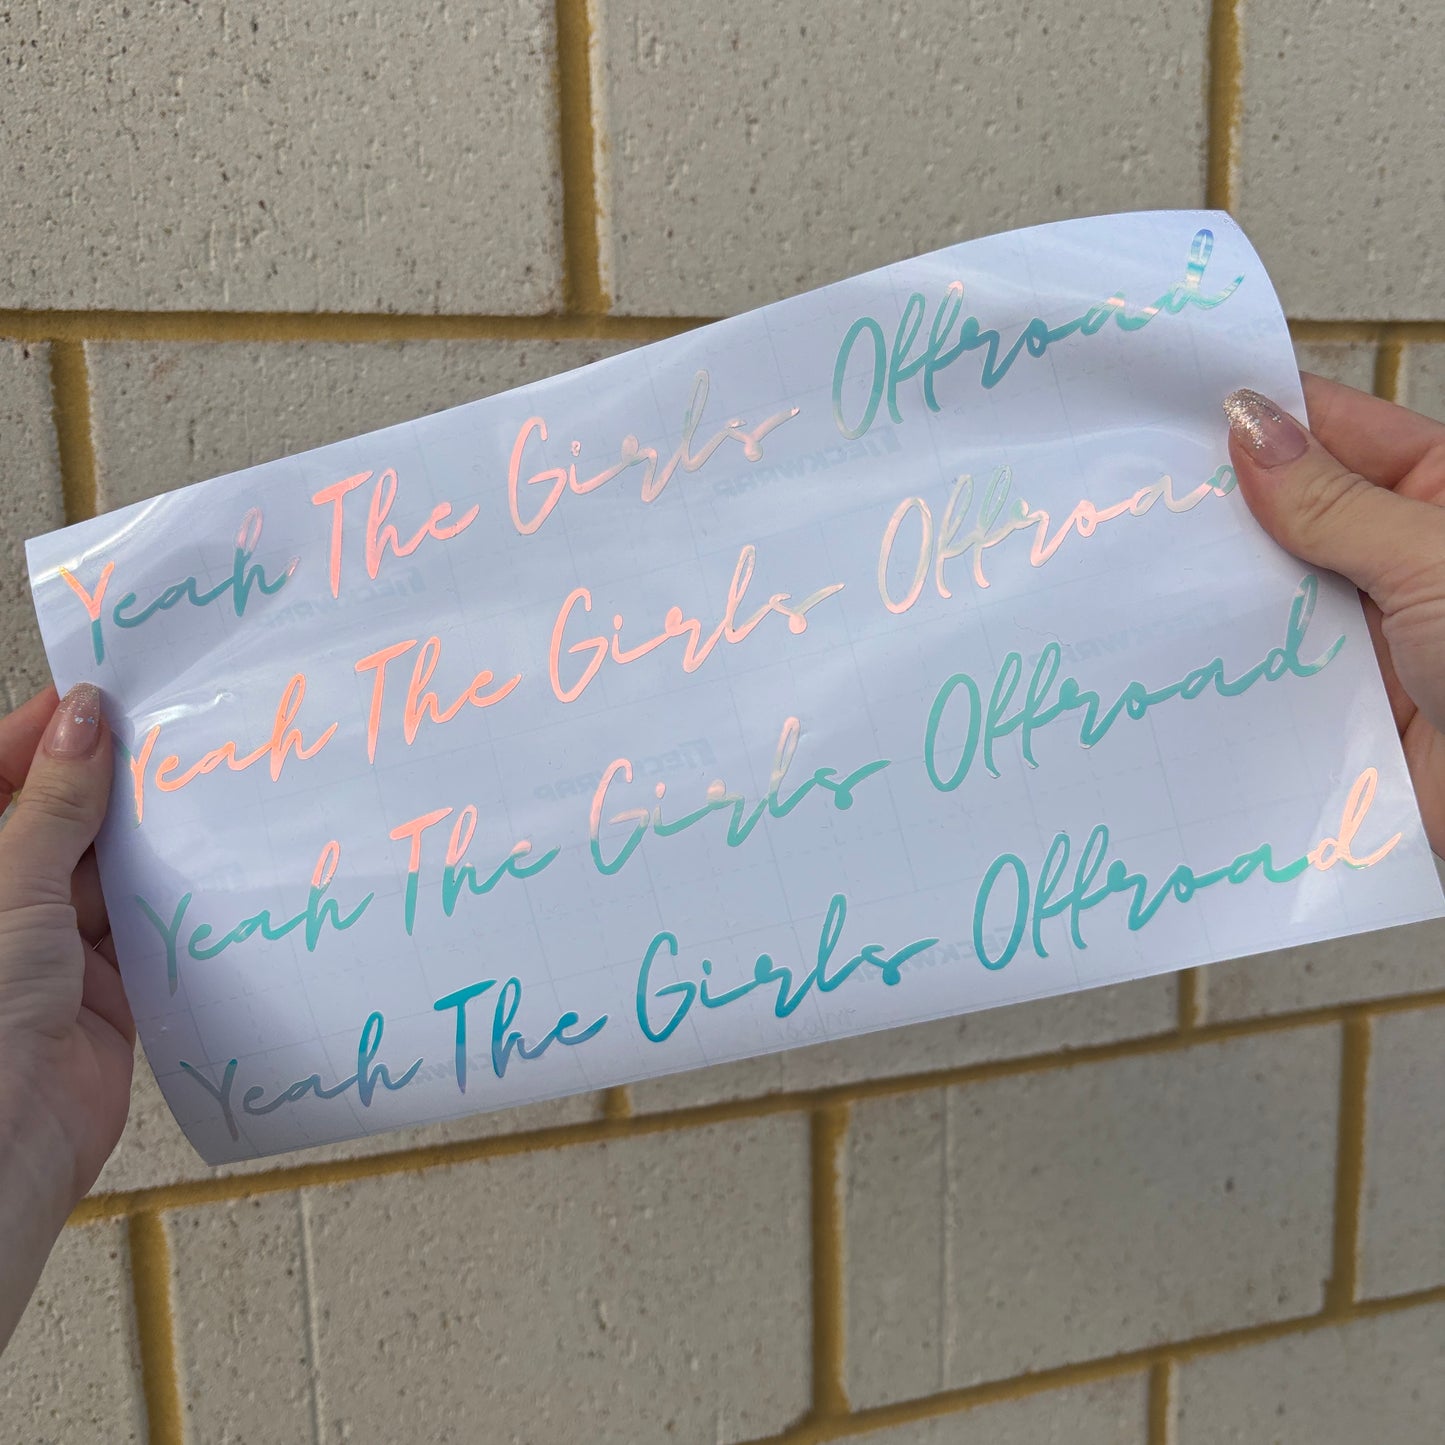 Yeah The Girls Offroad
Yeah The Girls Offroad
Yeah The Girls Offroad
Yeah The Girls Offroad
TECKWRAP
TECKWRAP
TECKWRAP
TECKWRAP
TECKWRAP
TECKWRAP